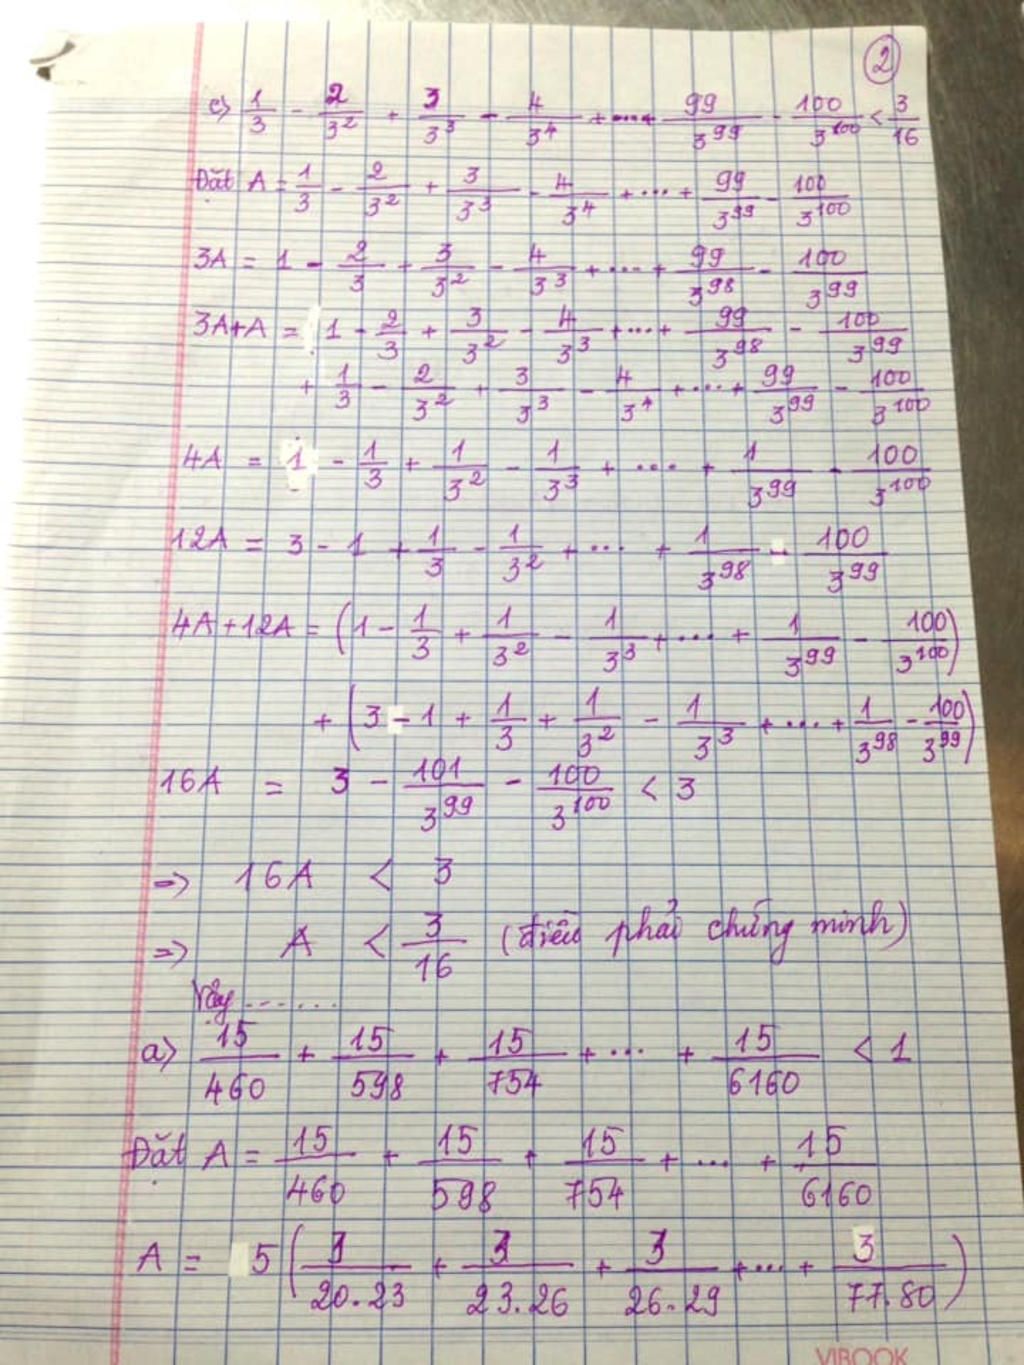 ②
c) 1/3 - 2/3² + 3/3³ - 4/3⁴ + ... + 99/3⁹⁹ - 100/3¹⁰⁰ < 3/16
Đặt A = 1/3 - 2/3² + 3/3³ - 4/3⁴ + ... + 99/3⁹⁹ - 100/3¹⁰⁰
3A = 1 - 2/3 + 3/3² - 4/3³ + ... + 99/3⁹⁸ - 100/3⁹⁹
3A+A = 1 - 2/3 + 3/3² - 4/3³ + ... + 99/3⁹⁸ - 100/3⁹⁹
+ 1/3 - 2/3² + 3/3³ - 4/3⁴ + ... + 99/3⁹⁹ - 100/3¹⁰⁰
4A = 1 - 1/3 + 1/3² - 1/3³ + ... + 1/3⁹⁹ - 100/3¹⁰⁰
12A = 3 - 1 + 1/3 - 1/3² + ... + 1/3⁹⁸ - 100/3⁹⁹
4A+12A = (1 - 1/3 + 1/3² - 1/3³ + ... + 1/3⁹⁹ - 100/3¹⁰⁰)
+ (3 - 1 + 1/3 + 1/3² - 1/3³ + ... + 1/3⁹⁸ - 100/3⁹⁹)
16A = 3 - 101/3⁹⁹ - 100/3¹⁰⁰ < 3
=> 16A < 3
=> A < 3/16 (điều phải chứng minh)
Vậy .......
a) 15/460 + 15/598 + 15/754 + ... + 15/6160 < 1
Đặt A = 15/460 + 15/598 + 15/754 + ... + 15/6160
A = 5 (3/20.23 + 3/23.26 + 3/26.29 + ... + 3/77.80)
VIBOOK